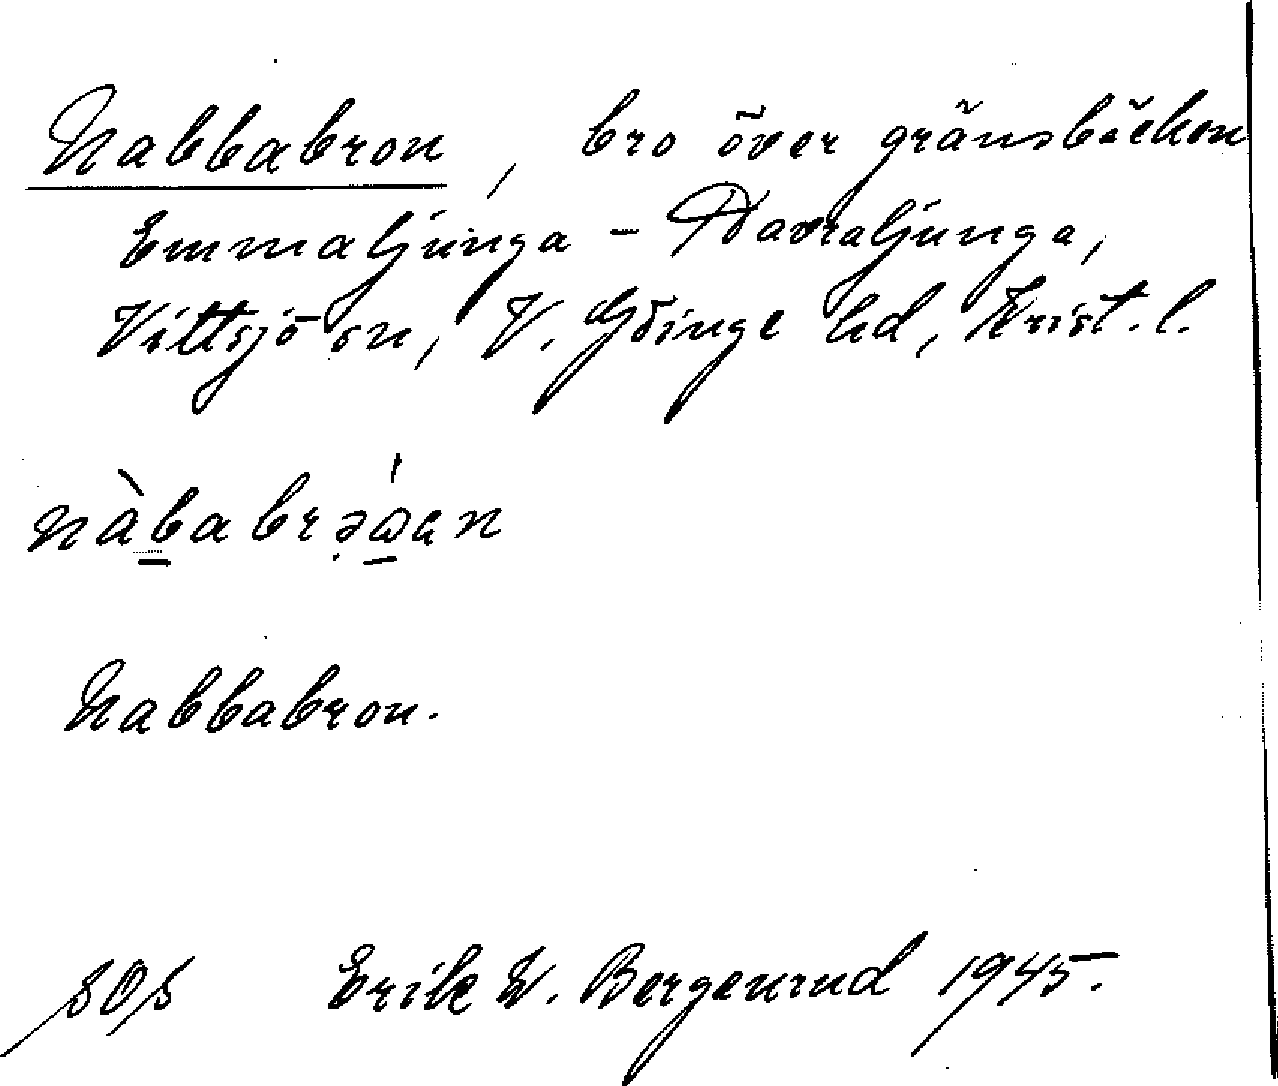 Nabbabron, bro över gränsbäcken
Emmaljunga - Davraljunga,
Vittsjö sn, V. Göinge hd, Krist. l.
Nabbabron.
Erik W. Bergenrud 1945.